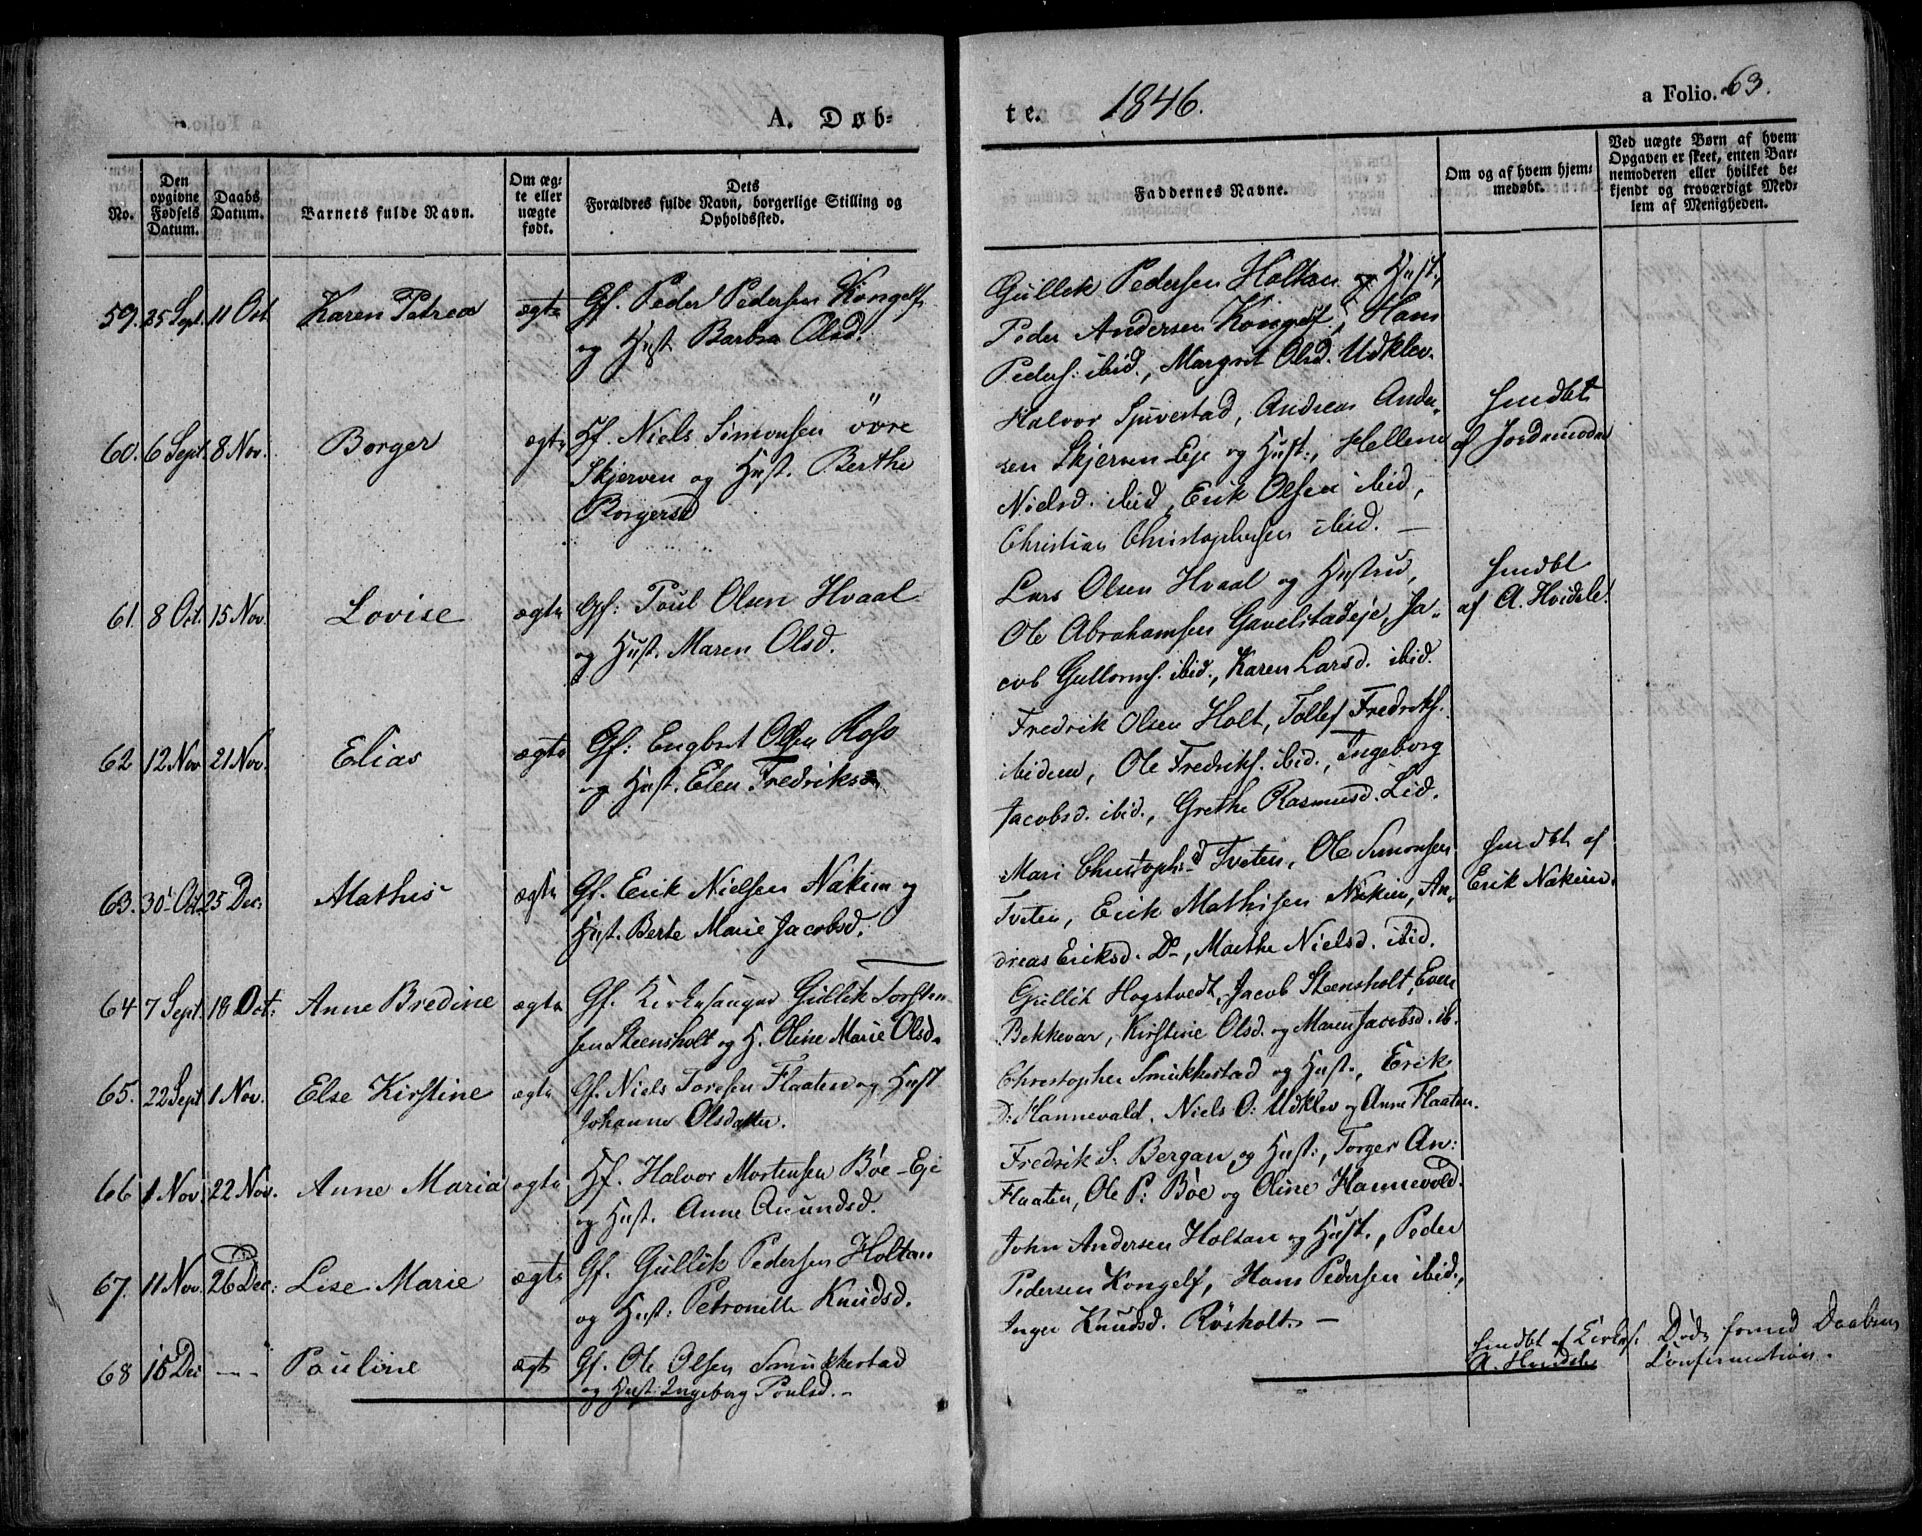 A. Døb-
te. 1846. a Folio. 63.
No.
Den opgivne Fødsels Datum.
Daabs Datum.
Barnets fulde Navn.
Om ægte eller uægte født.
Dets Forældres fulde Navn, borgerlige Stilling og Opholdssted.
Faddernes Navne.
Om og af hvem hjemmedøbt.
Ved uægte Børn af hvem Opgaven er skeet, enten Barnemoderen eller hvilket bekjendt og troværdigt Medlem af Menigheden.
59. 25 Sept. 11 Oct Karen Petrea ægte Gf. Peder Pedersen Kongelf
og Hust. Barbra Olsd.
Gullik Pedersen Holtan og Hust,
Peder Andersen Kongelf, Hans
Peders. ibid., Margret Olsd. Udklev.
60. 6 Sept. 8 Nov. Borger ægte Hf. Niels Simonsen övre
Skjerven og Hust. Berthe
Borgersd
Halvor Sjuvestad, Andreas Ander-
sen Skjerven Eje og Hust:, Hellene
Nielsd. ibid, Erik Olsen ibid,
Christian Christophersen ibid. —
hmdbt
af Jordemoder
61. 8 Oct. 15 Nov. Lovise ægte Gf: Poul Olsen Hvaal
og Hust. Maren Olsd.
Lars Olsen Hvaal og Hustru,
Ole Abrahamsen Gavelstadeje, Ja-
cob Gulloms. ibid., Karen Larsd. ibid.
hmdbt
af A. Hvidste!
62 12 Nov 21 Nov. Elias ægte Gf: Engbret Olsen Roso
og Hust. Elen Fredriksd
Fredrik Olsen Holt, Tollef Fredriks.
ibidem, Ole Fredriks. ibid., Ingeborg
Jacobsd. ibid., Grethe Rasmusd. Lid.
63. 30 Oct. 25 Dec: Mathis ægte Gf. Erik Nielsen Nakim og
Hust. Berte Marie Jacobsd.
Mari Christophd Tveten, Ole Simonsen
Tveten, Erik Mathisen Nakim, An-
dreas Eriksd. Do, Marthe Nielsd. ibid.
hmdbt af
Erik Nakim.
64 7 Sept. 18 Oct: Anne Bredine ægte Gf. Kirkesanger Gullik Torsten-
sen Steensholt og H. Oline Marie Olsd.
Gullik Hogstvedt, Jacob Steensholt, Even
Bekkevar, Kirstine Olsd. og Maren Jacobsd. ib.
65. 22 Sept 1 Nov. Else Kirstine ægte Gf. Niels Toresen Flaaten og Hust
Johanne Olsdatter.
Christopher Smukkestad og Hust., Erik
D: Hannevald, Niels O: Udklev og Anne Flaaten.
66 1 Nov. 22 Nov. Anne Maria ægte Hf. Halvor Mortensen Böe-Eje
og Hust. Anne Anundsd.
Fredrik S. Bergan og Hust:, Torger An:
Flaaten, Ole P: Böe og Oline Hannevold.
67. 11 Nov. 26 Dec: Lise Marie ægte Gf. Gullik Pedersen Holtan
og Hust: Petronelle Knudsd.
John Andersen Holtan og Hust., Peder
Pedersen Kongelf, Hans Pedersen ibid.,
Inger Knudsd. Rösholt. —
68 15 Dec — — Pauline ægte Gf. Ole Olsen Smukkestad
og Hust: Ingeborg Poulsd. —
hmdbt af Kirkes.
A. Hvidste
Död forend Daabens
Confirmation.